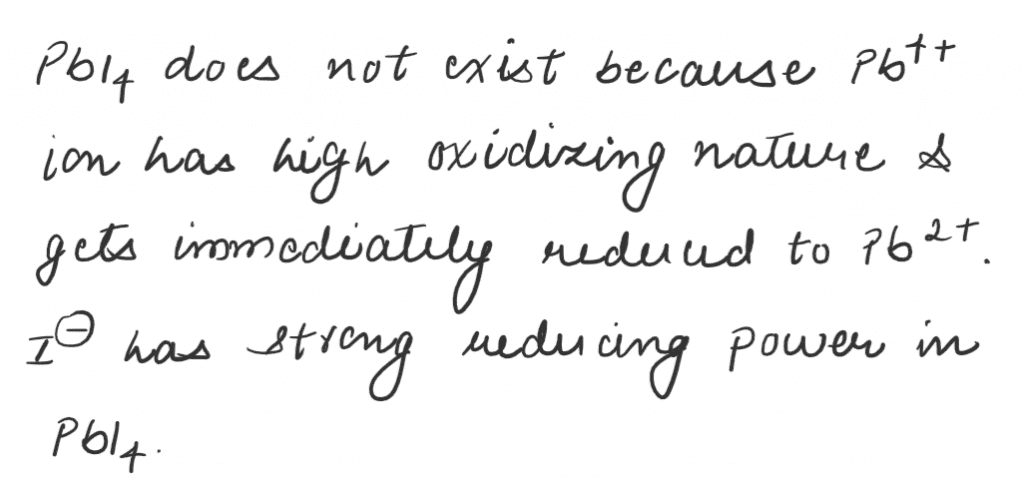 PbI4 does not exist because Pb4+
ion has high oxidizing nature &
gets immediately reduced to Pb2+.
I⊖ has strong reducing power in
PbI4.